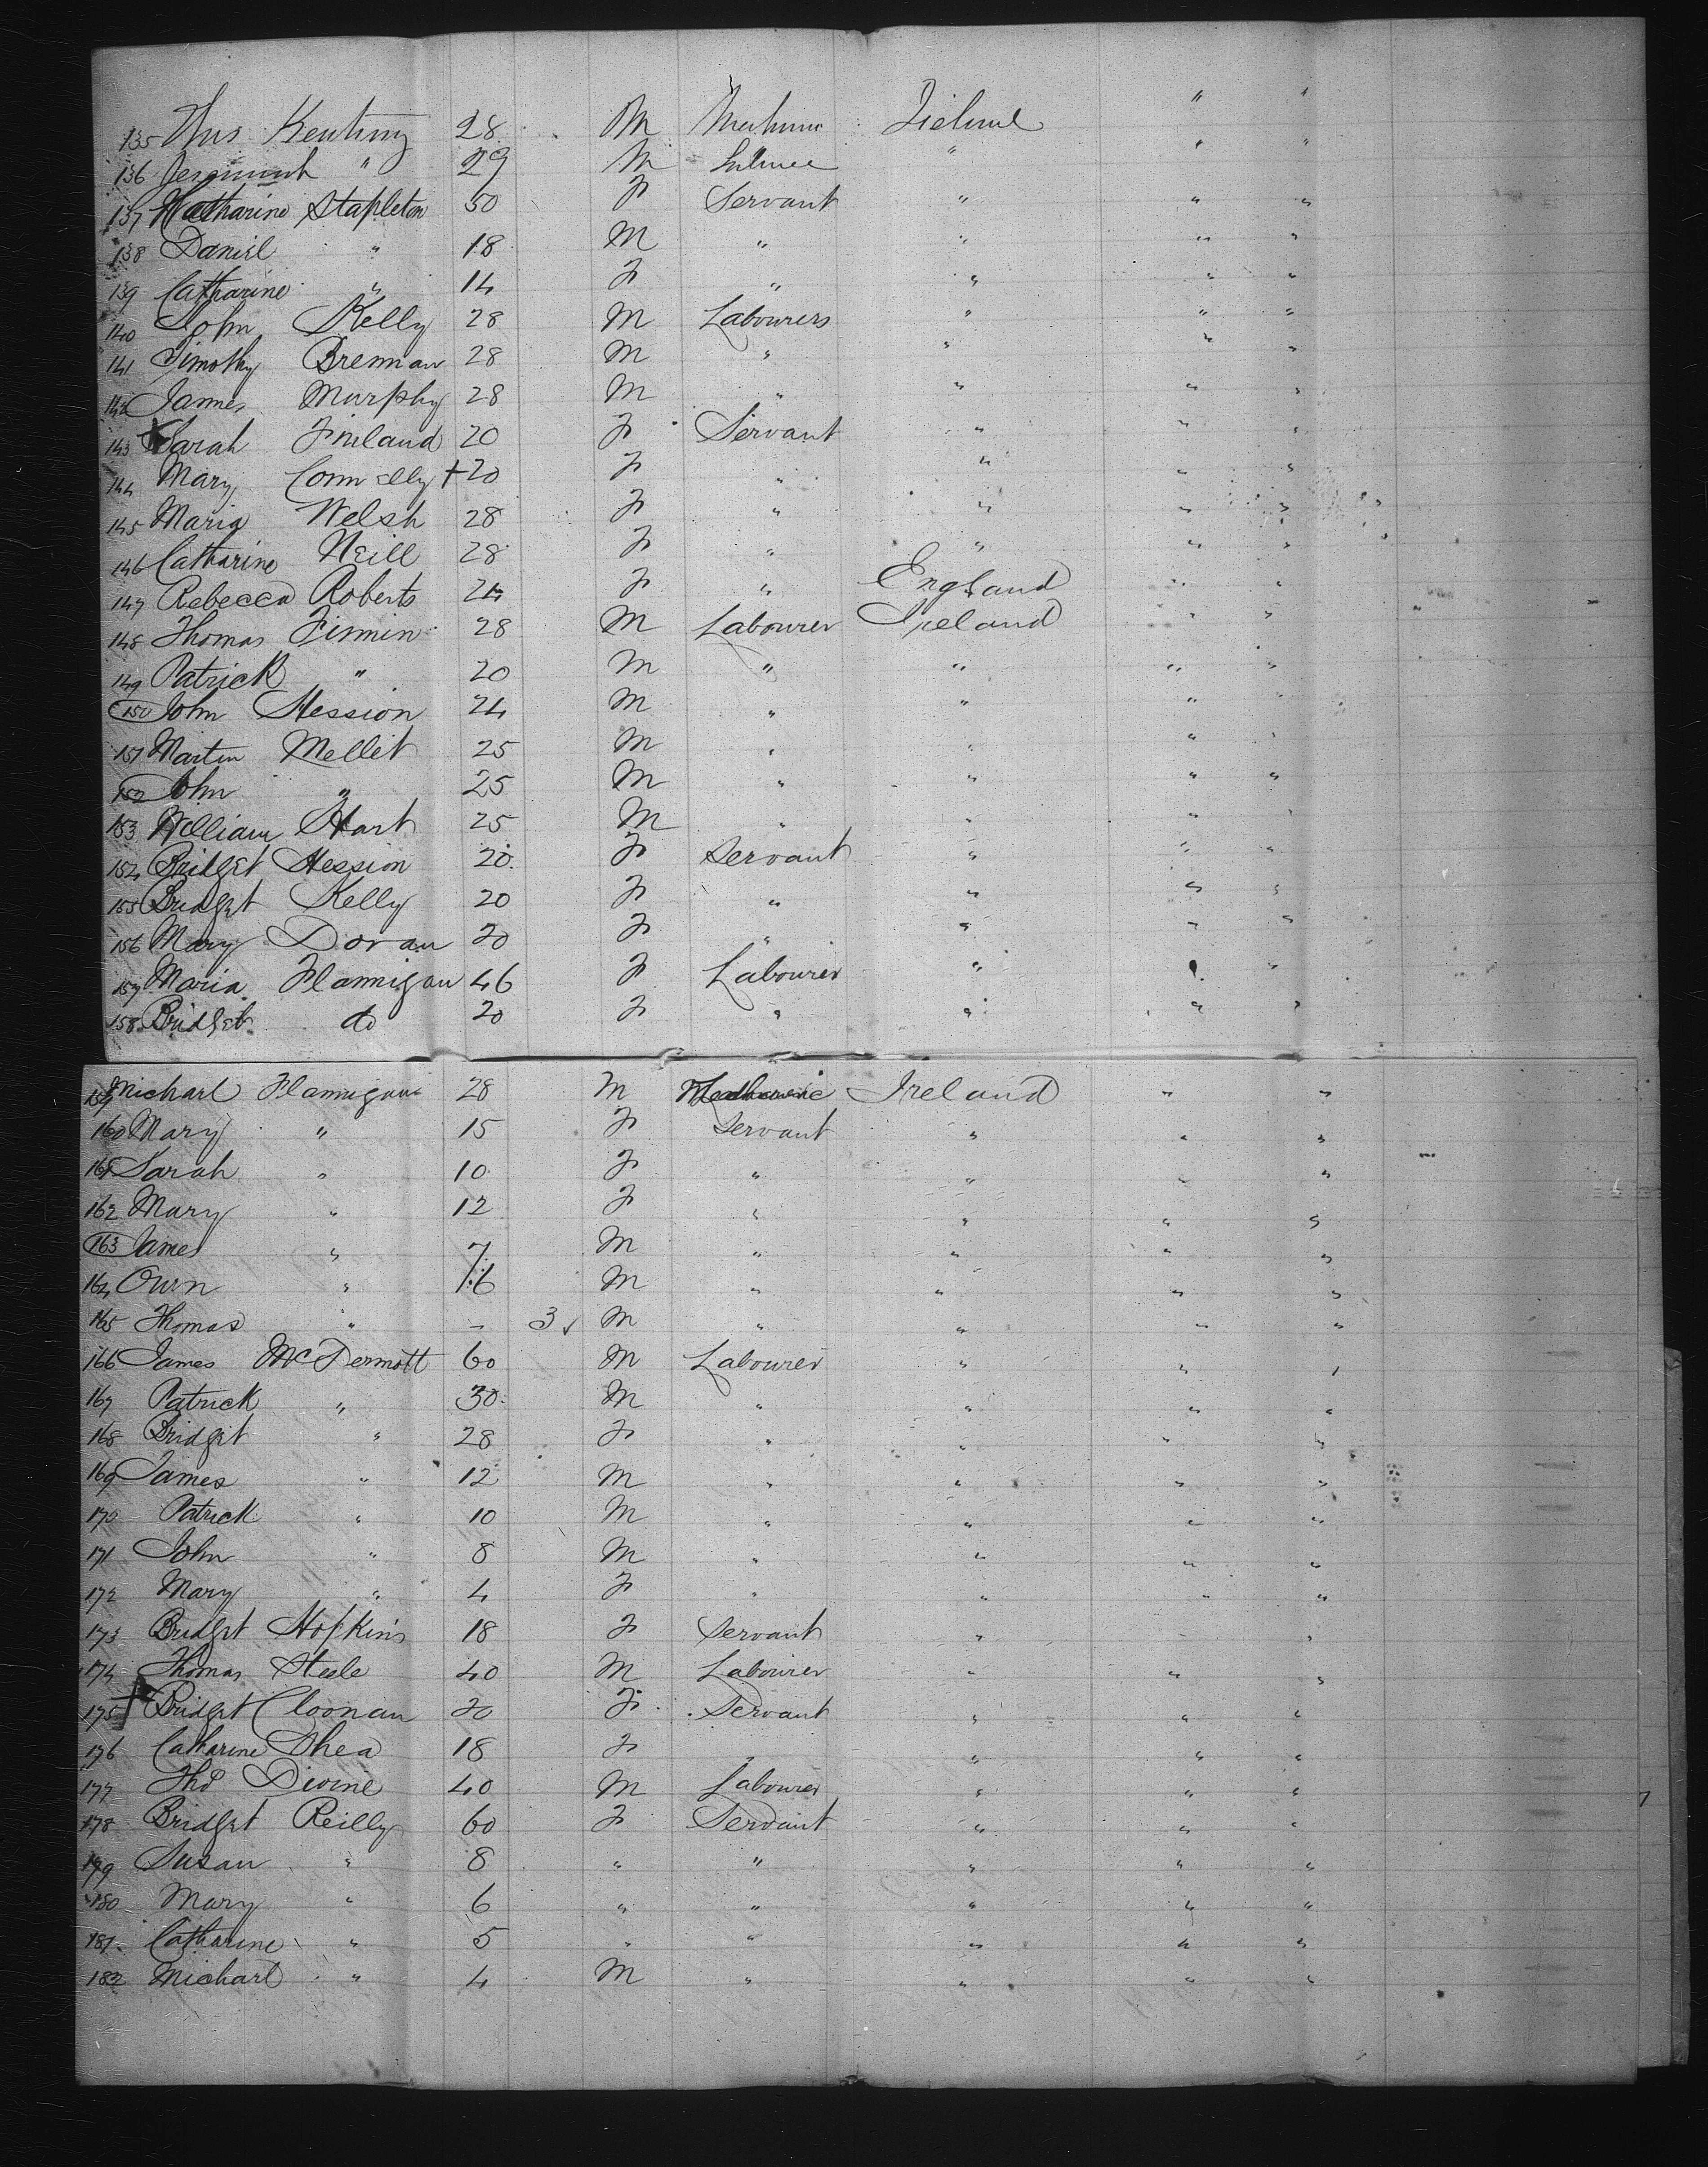 135 Thos Keating 28 M Mechanic Ireland " "
136 Jeremiah " 29 M " " "
137 Katharine Stapleton 50 F Servant " " "
138 Daniel " 18 M " " " "
139 Catharine " 14 F " " " "
140 John Kelly 28 M Labourers " " "
141 Timothy Brennan 28 M " " " "
142 James Murphy 28 M " " " "
143 Sarah Finland 20 F Servant " " "
144 Mary Connelly + 20 F " " " "
145 Maria Welsh 28 F " " " "
146 Catharine Neill 28 F " " " "
147 Rebecca Roberts 24 F " England " "
148 Thomas Firmin 28 M Labourer Ireland " "
149 Patrick " 20 M " " " "
150 John Hession 24 M " " " "
151 Martin Mellet 25 M " " " "
152 John " 25 M " " " "
153 William Hart 25 M " " " "
154 Bridget Hession 20 F Servant " " "
155 Bridget Kelly 20 F " " " "
156 Mary Doran 20 F " " " "
157 Maria Flannigan 46 F Labourer " " "
158 Bridget do 20 F " " " "
159 Michael Flannigan 28 M Ireland " "
160 Mary " 15 F Servant " " "
161 Sarah " 10 F " " " "
162 Mary " 12 F " " " "
163 James " 7 M " " " "
164 Owen " 16 M " " " "
165 Thomas " - 3 M " " " "
166 James McDermott 60 M Labourer " " "
167 Patrick " 30 M " " " "
168 Bridget " 28 F " " " "
169 James " 12 M " " " "
170 Patrick " 10 M " " " "
171 John " 8 M " " " "
172 Mary " 4 F " " " "
173 Bridget Hopkins 18 F Servant " " "
174 Thomas Steele 40 M Labourer " " "
175 + Bridget Cloonan 20 F Servant " " "
176 Catharine Shea 18 F " " " "
177 Tho Divine 40 M Labourer " " "
178 Bridget Reilly 60 F Servant " " "
179 Susan " 8 " " " " "
180 Mary " 6 " " " " "
181 Catharine " 5 " " " " "
182 Michael " 4 M " " " "